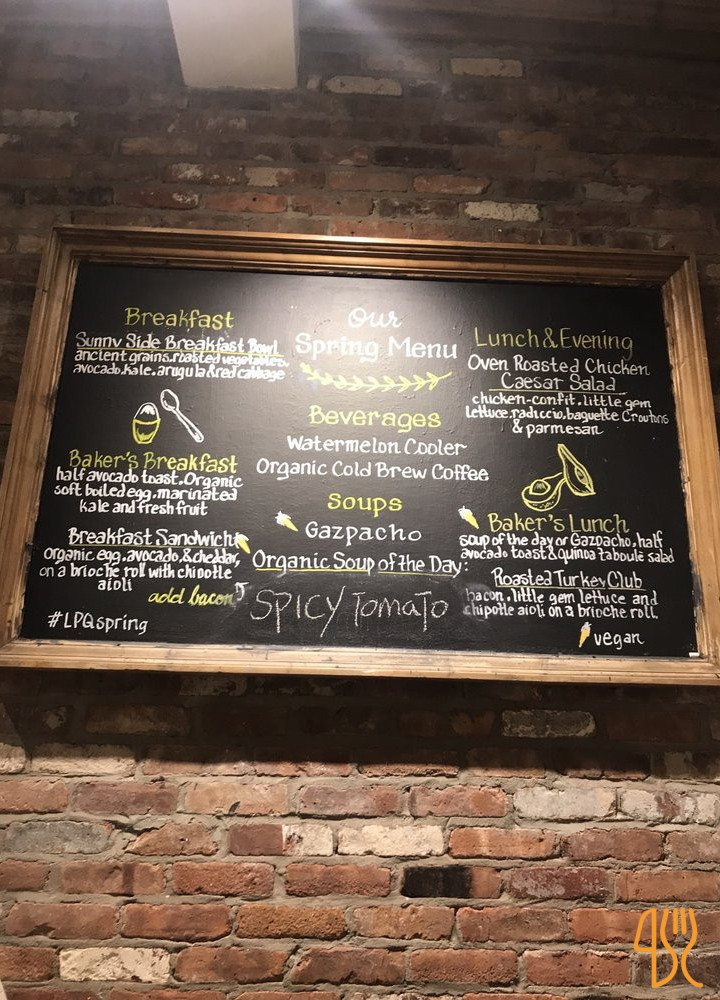 Breakfast
Sunny Side Breakfast Bowl
ancient grains, roasted vegetables,
avocado, kale, arugula & red cabbage
Baker's Breakfast
half avocado toast, Organic
soft boiled egg, marinated
kale and fresh fruit
Breakfast Sandwich
organic egg, avocado, & cheddar,
on a brioche roll with chipotle
aioli
add bacon
#LPQspring
Our
Spring Menu
Beverages
Watermelon Cooler
Organic Cold Brew Coffee
Soups
Gazpacho
Organic Soup of the Day:
SPICY TOMATO
Lunch & Evening
Oven Roasted Chicken
Caesar Salad
chicken-confit, little gem
lettuce, radiccio, baguette Croutons
& parmesan
Baker's Lunch
soup of the day or Gazpacho, half
avocado toast & quinoa taboule salad
Roasted Turkey Club
bacon, little gem lettuce and
chipotle aioli on a brioche roll.
vegan